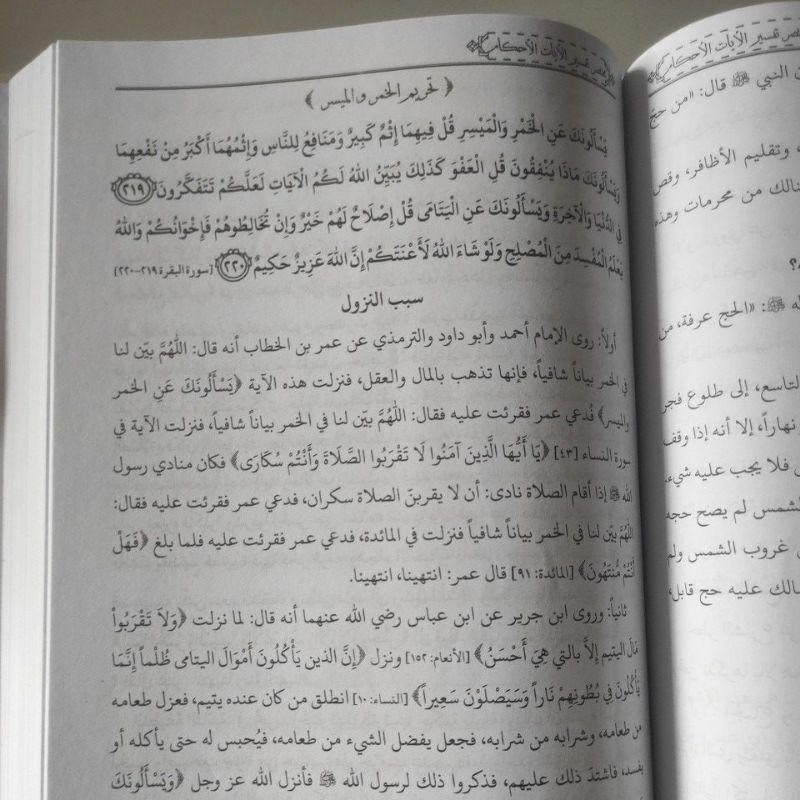 مختصر تفسير الآيات الأحكام
﴿ تحريم الخمر والميسر ﴾
يَسْأَلُونَكَ عَنِ الْخَمْرِ وَالْمَيْسِرِ قُلْ فِيهِمَا إِثْمٌ كَبِيرٌ وَمَنَافِعُ لِلنَّاسِ وَإِثْمُهُمَا أَكْبَرُ مِنْ نَفْعِهِمَا
وَيَسْأَلُونَكَ مَاذَا يُنْفِقُونَ قُلِ الْعَفْوَ كَذَلِكَ يُبَيِّنُ اللهُ لَكُمُ الْآيَاتِ لَعَلَّكُمْ تَتَفَكَّرُونَ ٢١٩
فِي الدُّنْيَا وَالْآخِرَةِ وَيَسْأَلُونَكَ عَنِ الْيَتَامَى قُلْ إِصْلَاحٌ لَهُمْ خَيْرٌ وَإِنْ تُخَالِطُوهُمْ فَإِخْوَانُكُمْ وَاللهُ
يَعْلَمُ الْمُفْسِدَ مِنَ الْمُصْلِحِ وَلَوْ شَاءَ اللهُ لَأَعْنَتَكُمْ إِنَّ اللهَ عَزِيزٌ حَكِيمٌ ٢٢٠ [سورة البقرة ٢١٩-٢٢٠]
سبب النزول
أولاً: روى الإمام أحمد وأبو داود والترمذي عن عمر بن الخطاب أنه قال: اللهُمَّ بيّن لنا
في الخمر بياناً شافياً، فإنها تذهب بالمال والعقل، فنزلت هذه الآية ﴿يَسْأَلُونَكَ عَنِ الخمر
والميسر﴾ فدُعي عمر فقرئت عليه فقال: اللهُمَّ بيّن لنا في الخمر بياناً شافياً، فنزلت الآية في
سورة النساء [٤٣] ﴿يَا أَيُّهَا الَّذِينَ آمَنُوا لَا تَقْرَبُوا الصَّلَاةَ وَأَنْتُمْ سُكَارَى﴾ فكان منادي رسول
الله ﷺ إذا أقام الصلاة نادى: أن لا يقربنّ الصلاة سكران، فدعي عمر فقرئت عليه فقال:
اللهُمَّ بيّن لنا في الخمر بياناً شافياً فنزلت في المائدة، فدعي عمر فقرئت عليه فلما بلغ ﴿فَهَلْ
أَنْتُمْ مُنْتَهُونَ﴾ [المائدة: ٩١] قال عمر: انتهينا، انتهينا.
ثانياً: وروى ابن جرير عن ابن عباس رضي الله عنهما أنه قال: لما نزلت ﴿وَلَا تَقْرَبُواْ
مَالَ اليتيم إِلاَّ بالتي هِيَ أَحْسَنُ﴾ [الأنعام: ١٥٢] ونزل ﴿إِنَّ الذين يَأْكُلُونَ أَمْوَالَ اليتامى ظُلْماً إِنَّمَا
يَأْكُلُونَ فِي بُطُونِهِمْ نَاراً وَسَيَصْلَوْنَ سَعِيراً﴾ [النساء: ١٠] انطلق من كان عنده يتيم، فعزل طعامه
من طعامه، وشرابه من شرابه، فجعل يفضل الشيء من طعامه، فيُحبس له حتى يأكله أو
يفسد، فاشتدّ ذلك عليهم، فذكروا ذلك لرسول الله ﷺ فأنزل الله عز وجل ﴿وَيَسْأَلُونَكَ
مختصر تفسير الآيات الأحكام
النبي ﷺ قال: «من حج
، وتقليم الأظافر، وقص
نالك من محرمات وهذه
ﷺ: «الحج عرفة، من
لتاسع، إلى طلوع فجر
نهاراً، إلا أنه إذا وقف
فلا يجب عليه شيء.
لشمس لم يصح حجه
غروب الشمس ولم
مالك عليه حج قابل،